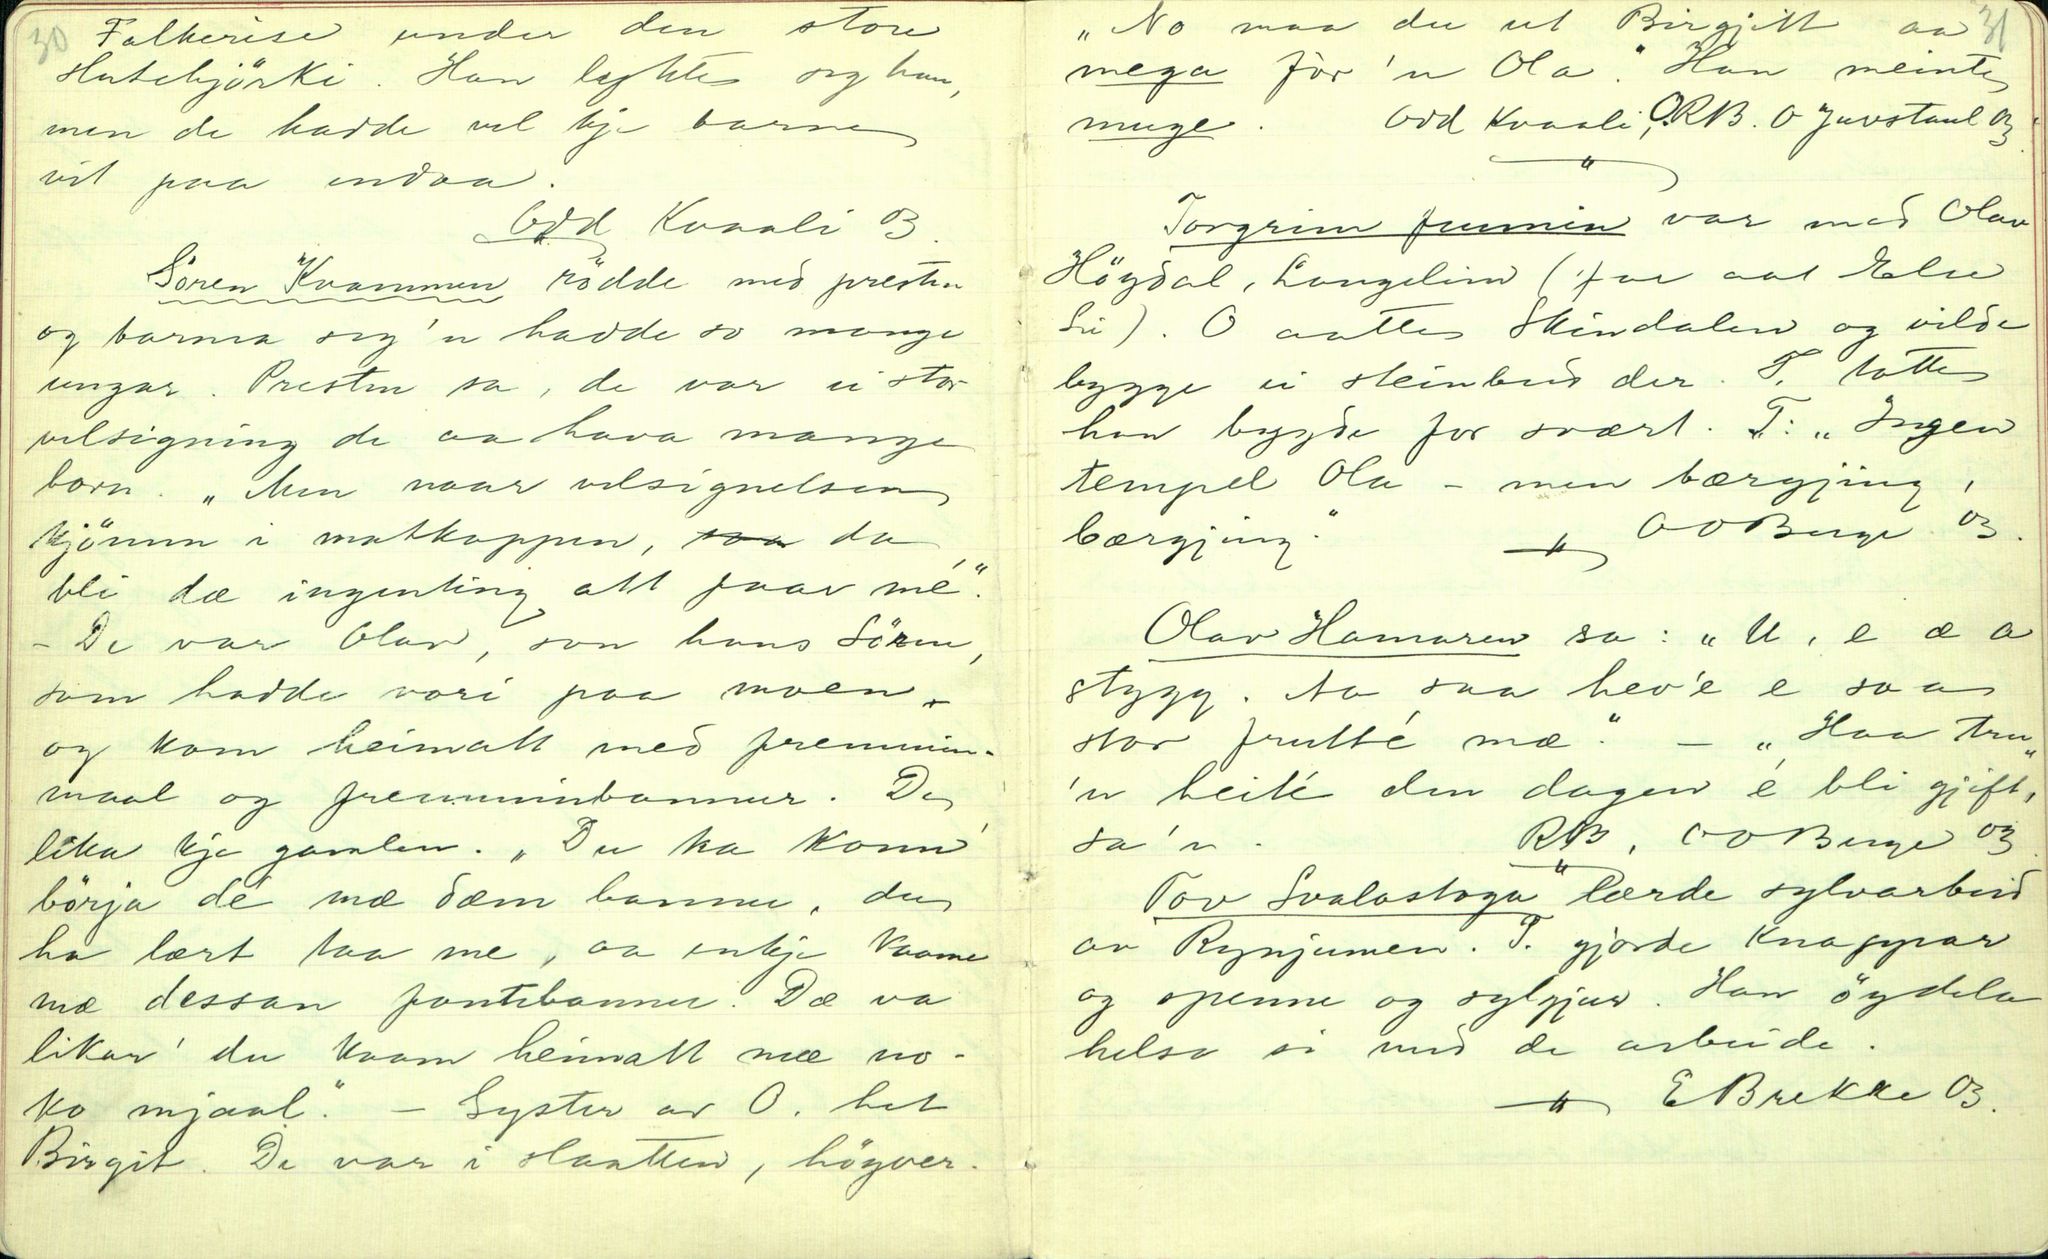 30
Falkerise under den store
Slutebjörki. Han lyktes seg han,
men de hadde vel kje barne
vit paa endaa.
Odd Kvaali OB.
Sören Kvammen rödde med presten
og barma seg'n hadde so mange
ungar. Presten sa, de var ei stor
velsigning de aa hava mange
born. „Men naar velsignelsen
kjömm i matkoppen, saa da
bli dæ ingenting att paav mé".
- De var Olav, son hans Sören,
som hadde vori paa moen
og kom heimatt med fremmin-
maal og fremminbannur. De
lika kje gamlen. „Du ka komm'
börja dé mæ dæm bannu, du
ha lært taa me, aa inkje kaame
mæ dessan fantebannu. Dæ va
likar' du kaam heimatt mæ no-
ko mjaal." - Syster av O. het
Birgit. De var i slaatten, högver.
31
„No maa du ut Birgjitt aa
mega för'n Ola." Han meinte
muge. Odd Kvaali, O.RB. O Juvstaul OB.
Torgrim fummin var med Olav
Höydal, Langelim (far aat Else
Lii). O aatte Skindalen og vilde
bygge ei steinbud der. T. totte
han bygde for svært. T: „Ingen
tempel Ola - men bærgjing,
bærgjing." OOBerge OB.
Olav Hamaren sa: „U, e æ a
stygg. Aa saa hev'e e saa
stor frutté mæ." - „Haa tru
'n heité den dagen é bli gjift,"
sa'n. RB, OOBerge OB
Tov Svalastoga lærde sylvarbeid
av Rynjumen. T. gjorde knappar
og spenne og sylgjur. Han öydela
helsa si med de arbeide.
E Brekke OB.